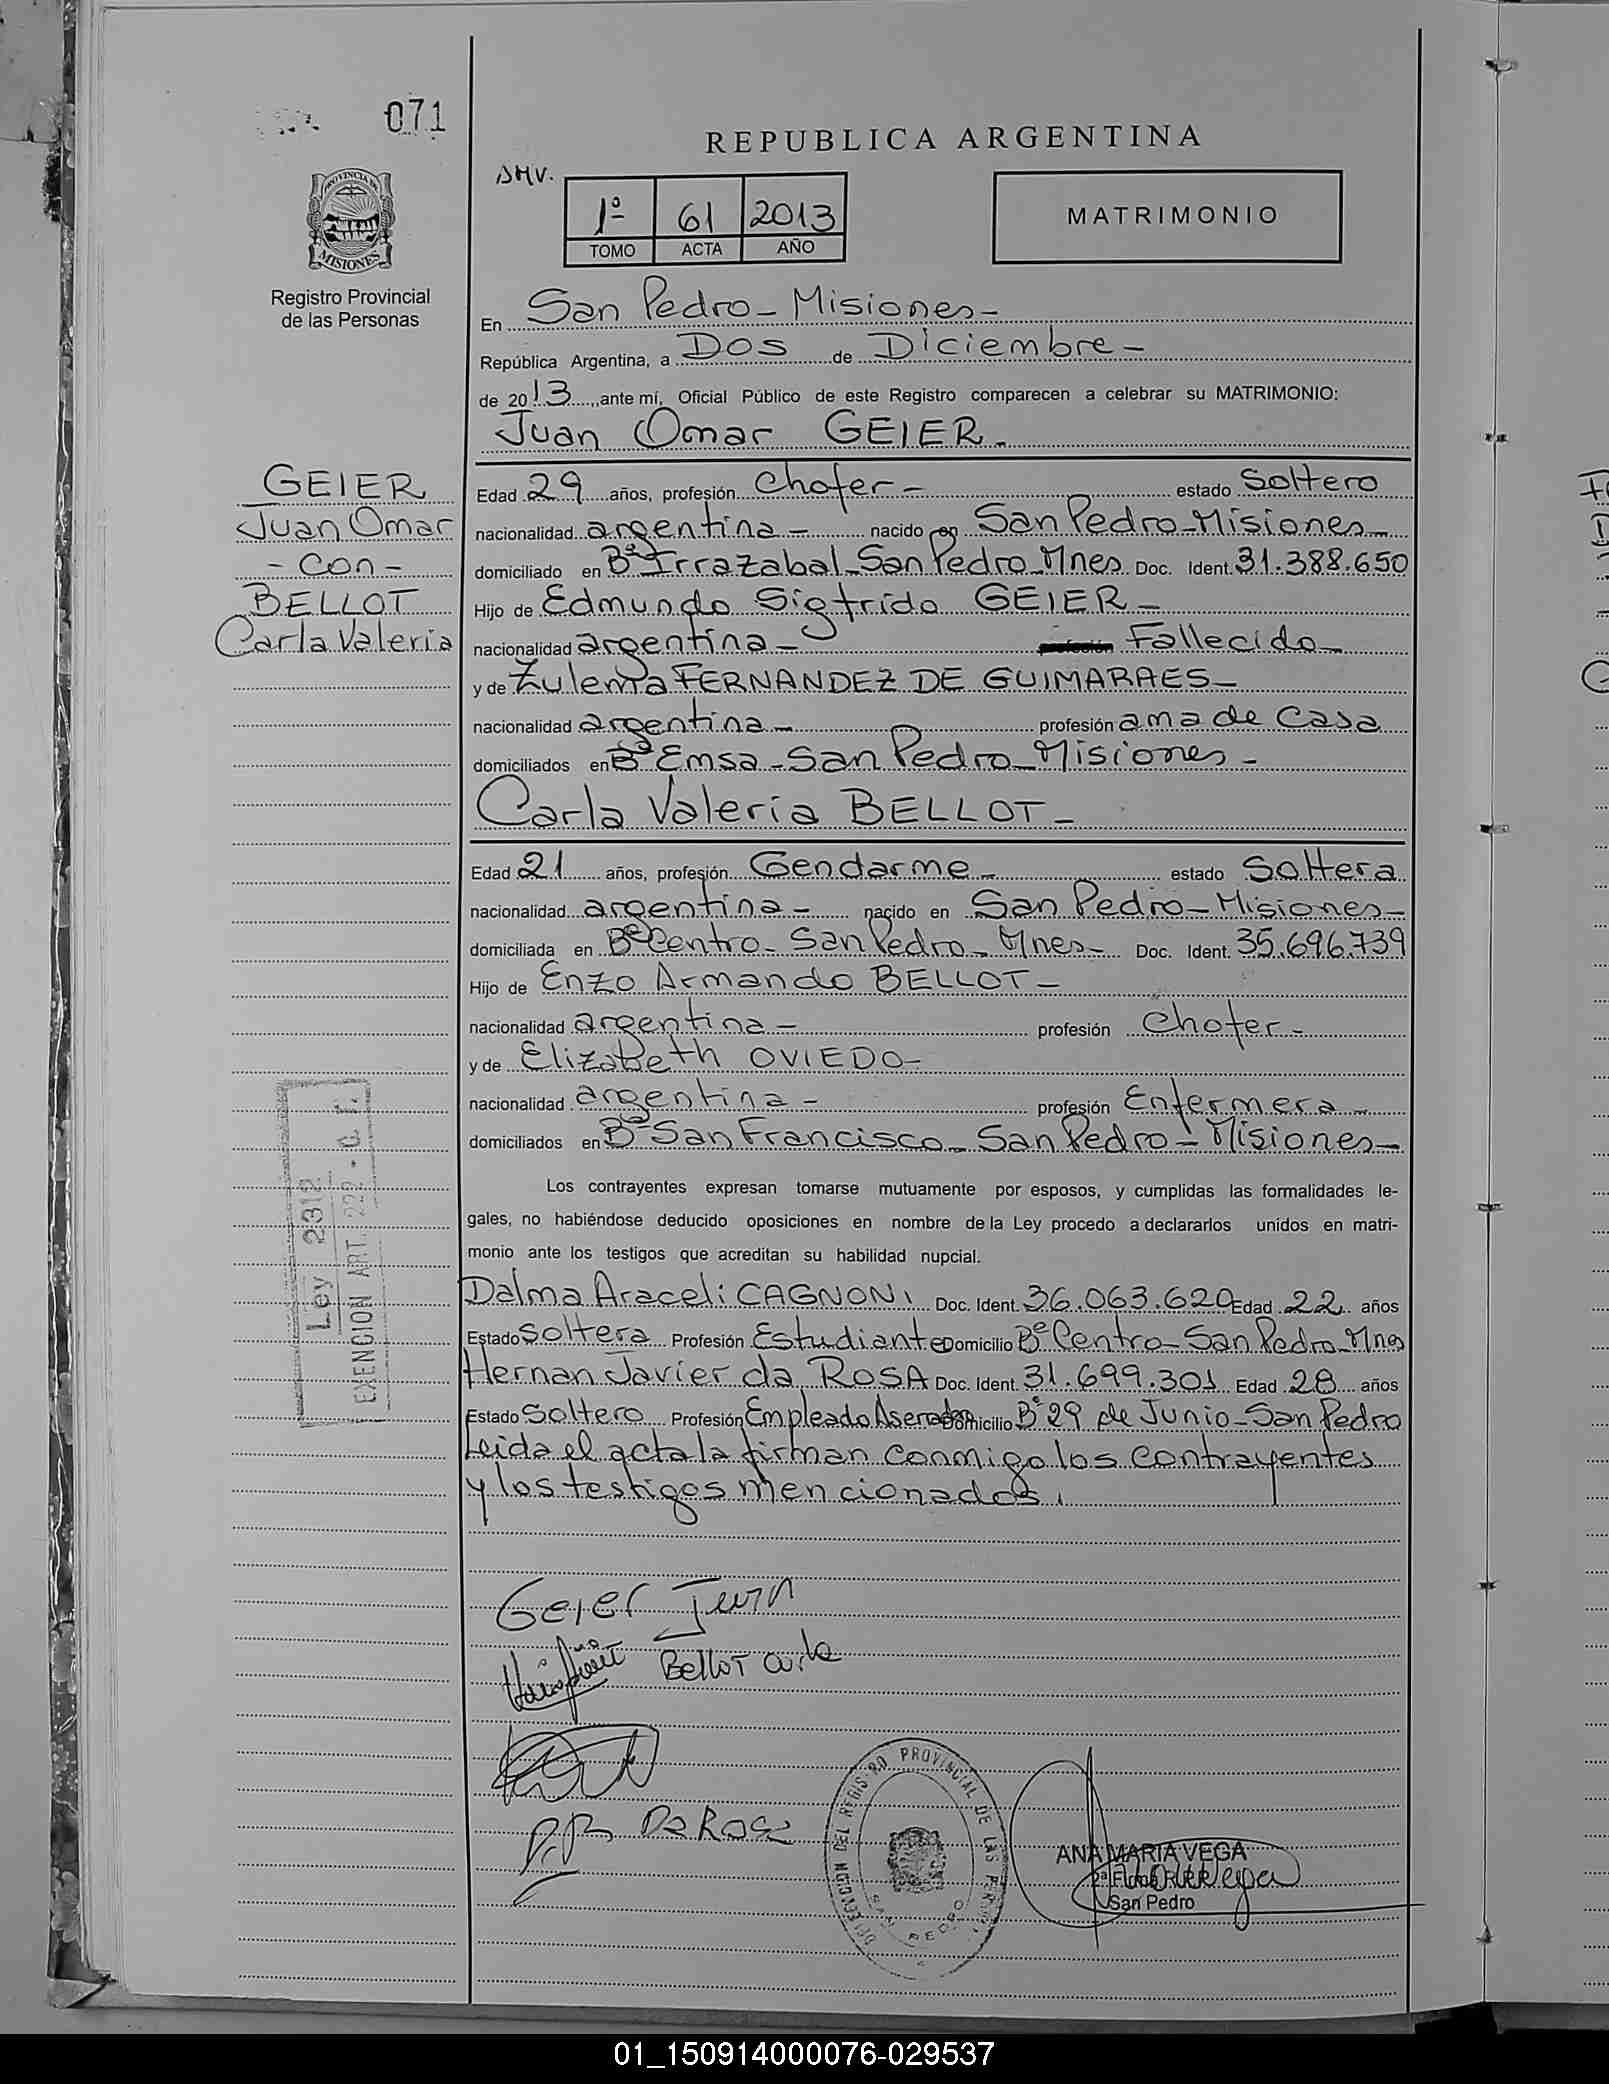 071
REPUBLICA ARGENTINA
AMV.
1º 61 2013
TOMO ACTA AÑO
MATRIMONIO
PROVINCIA DE
MISIONES
Registro Provincial
de las Personas
En San Pedro - Misiones -
República Argentina, a Dos de Diciembre -
de 2013, ante mí, Oficial Público de este Registro comparecen a celebrar su MATRIMONIO:
Juan Omar GEIER -
GEIER
Juan Omar
- con -
BELLOT
Carla Valeria
Edad 29 años, profesión Chofer - estado Soltero
nacionalidad argentina - nacido en San Pedro - Misiones -
domiciliado en Bº Irrazabal - San Pedro - Mnes Doc. Ident. 31.388.650
Hijo de Edmundo Sigfrido GEIER -
nacionalidad argentina - profesión Fallecido -
y de Zulema FERNANDEZ DE GUIMARAES -
nacionalidad argentina - profesión ama de casa
domiciliados en Bº Emsa - San Pedro - Misiones -
Carla Valeria BELLOT -
Edad 21 años, profesión Gendarme - estado Soltera
nacionalidad argentina - nacido en San Pedro - Misiones -
domiciliada en Bº Centro - San Pedro - Mnes - Doc. Ident. 35.696.739
Hijo de Enzo Armando BELLOT -
nacionalidad argentina - profesión Chofer -
y de Elizabeth OVIEDO -
nacionalidad argentina - profesión Enfermera -
domiciliados en Bº San Francisco - San Pedro - Misiones -
Los contrayentes expresan tomarse mutuamente por esposos, y cumplidas las formalidades le-
gales, no habiéndose deducido oposiciones en nombre de la Ley procedo a declararlos unidos en matri-
monio ante los testigos que acreditan su habilidad nupcial.
Dalma Araceli CAGNONI Doc. Ident. 36.063.620 Edad 22 años
Estado Soltera Profesión Estudiante Domicilio Bº Centro - San Pedro - Mnes
Hernan Javier da ROSA Doc. Ident. 31.699.301 Edad 28 años
Estado Soltero Profesión Empleado Aserradero Domicilio Bº 29 de Junio - San Pedro
Leida el acta la firman conmigo los contrayentes
y los testigos mencionados.
Ley 2312
EXENCION ART. 222 - C. F.
Geier Juan
Bellot Carla
Da Rosa
DELEGACION DEL REGISTRO PROVINCIAL DE LAS PERSONAS
SAN PEDRO
ANA MARIA VEGA
San Pedro
01_150914000076-029537